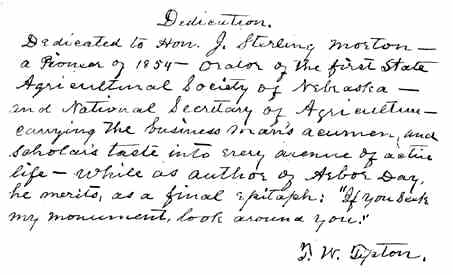 Dedication.
Dedicated to Hon. J. Sterling Morton —
a Pioneer of 1854 — Orator of the first State
Agricultural Society of Nebraska —
and National Secretary of Agriculture —
carrying the business man's acumen, and
scholar's taste into every avenue of active
life — while as author of Arbor Day,
he merits, as a final epitaph: "If you seek
my monument, look around you."
T. W. Tipton.